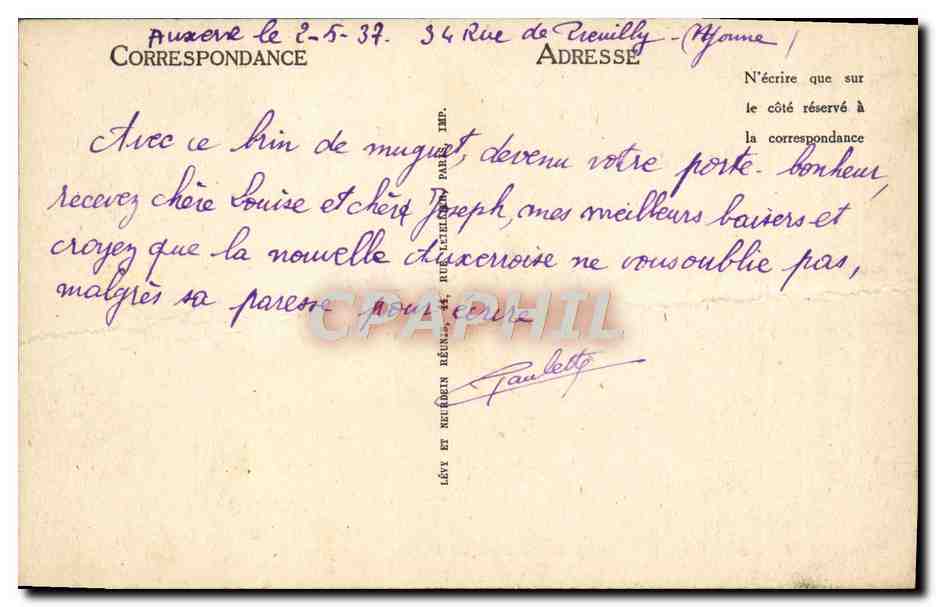 Auxerre le 2-5-37. 34 Rue de Preuilly - (Yonne)
CORRESPONDANCE
ADRESSE
N'écrire que sur
le côté réservé à
la correspondance
Avec ce brin de muguet, devenu votre porte-bonheur,
recevez chère Louise et cher Joseph, mes meilleurs baisers et
croyez que la nouvelle Auxerroise ne vous oublie pas,
malgrès sa paresse pour écrire
Paulette
LÉVY ET NEURDEIN RÉUNIS, 44, RUE LETELLIER, PARIS, IMP.
CPAPHIL